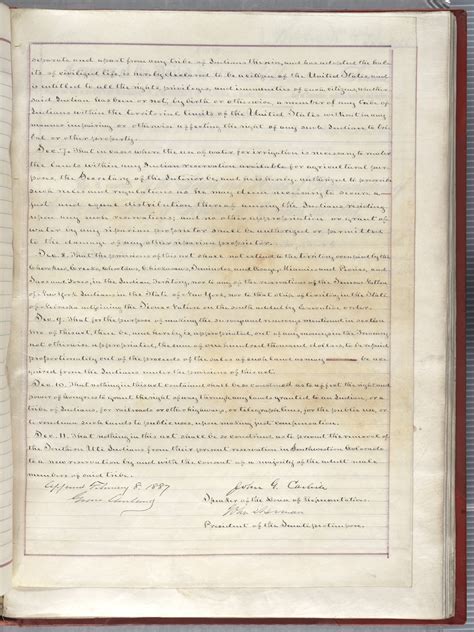 separate and apart from any tribe of Indians therein, and has adopted the hab-
its of civilized life, is hereby declared to be a citizen of the United States, and
is entitled to all the rights, privileges, and immunities of such citizens, whether
said Indian has been or not, by birth or otherwise, a member of any tribe of
Indians within the territorial limits of the United States without in any
manner impairing or otherwise affecting the right of any such Indian to tri-
bal or other property.
Sec. 7. That in cases where the use of water for irrigation is necessary to render
the lands within any Indian reservation available for agricultural pur-
poses, the Secretary of the Interior be, and he is hereby, authorized to prescribe
such rules and regulations as he may deem necessary to secure a
just and equal distribution thereof among the Indians residing
upon any such reservations; and no other appropriation or grant of
water by any riparian proprietor shall be authorized or permitted
to the damage of any other riparian proprietor.
Sec. 8. That the provision of this act shall not extend to the territory occupied by the
Cherokees, Creeks, Choctaws, Chickasaws, Seminoles, and Osage, Miamies and Peorias, and
Sacs and Foxes, in the Indian Territory, nor to any of the reservations of the Seneca Nation
of New York Indians in the State of New York, nor to that strip of territory in the State
of Nebraska adjoining the Sioux Nation on the south added by executive order.
Sec. 9. That for the purpose of making the surveys and resurveys mentioned in section
two of this act, there be, and hereby is, appropriated, out of any moneys in the Treasury
not otherwise appropriated, the sum of one hundred thousand dollars, to be repaid
proportionately out of the proceeds of the sales of such land as may be ac-
quired from the Indians under the provisions of this act.
Sec. 10. That nothing in this act contained shall be so construed as to affect the right and
power of Congress to grant the right of way through any lands granted to an Indian, or a
tribe of Indians, for railroads or other highways, or telegraph lines, for the public use, or
to condemn such lands to public uses, upon making just compensation.
Sec. 11. That nothing in this act shall be so construed as to prevent the removal of
the Southern Ute Indians from their present reservation in Southwestern Colorado
to a new reservation by and with the consent of a majority of the adult male
members of said tribe.
Approved February 8. 1887
Grover Cleveland
John G. Carlisle
Speaker of the House of Representatives.
John Sherman
President of the Senate pro tempore.